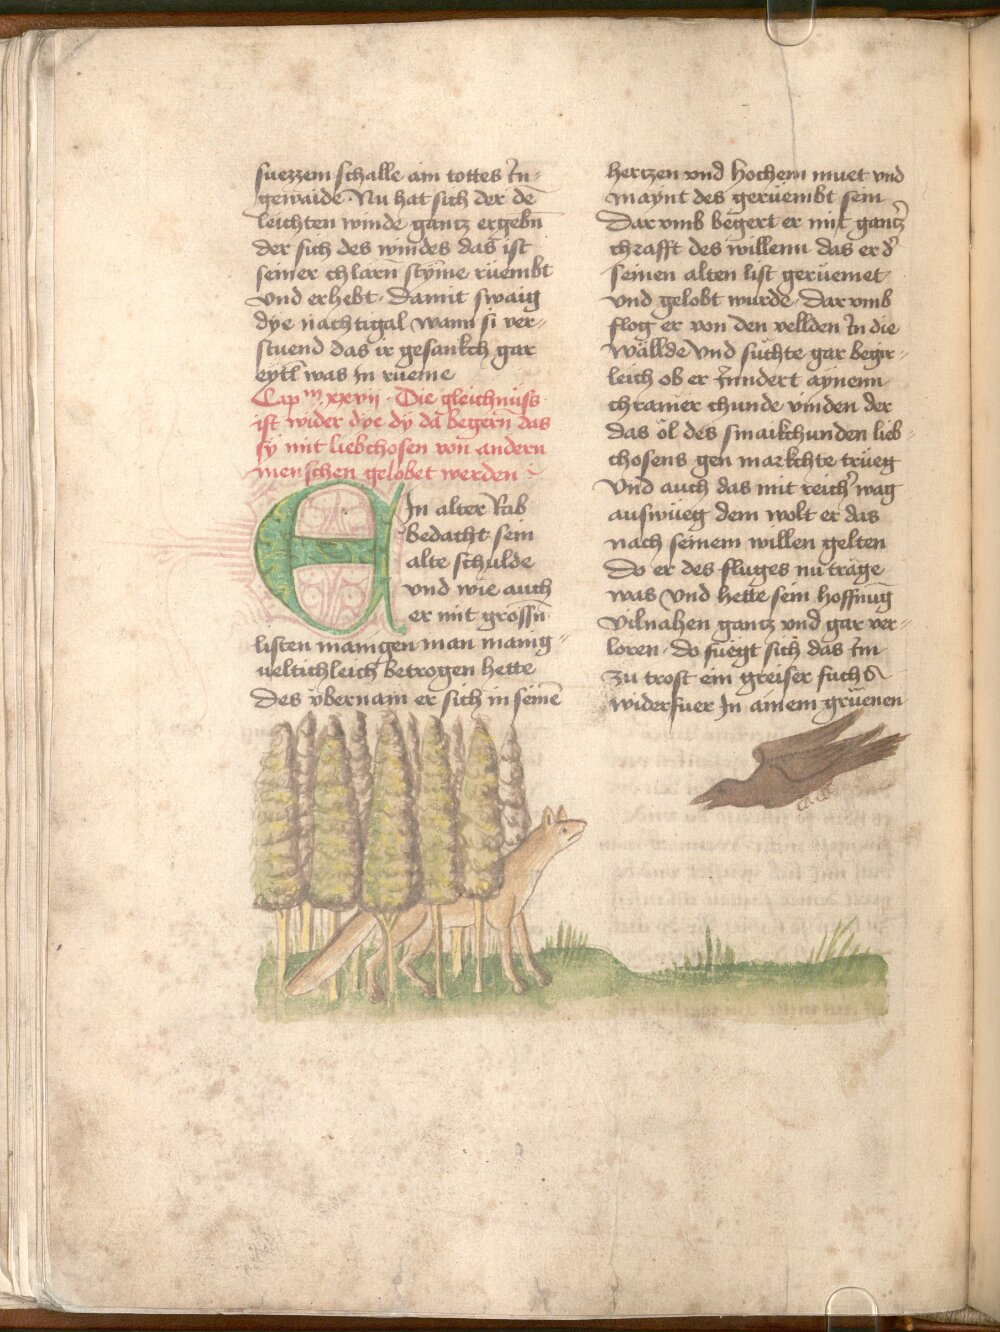 suezzem schalle am tottes In-
gewaide. Nu hat sich der dē
leichten winde gantz ergebn̄
der sich des windes das ist
seiner chlarn̄ stȳme rüembt
vnd erhebt. Damit swaig
dÿe nachtigal wann si ver-
stuend das ir gesankch gar
eÿtl was in rueme
Capᵐ xxvii. Die gleichnüss
ist wider dÿe dÿ da begern̄ das
sÿ mit liebchosen von andern
menschen gelobet werden
EIn alter Rab
bedacht sein
alte schulde
vnd wie auch
er mit grossn̄
listen manigen man manig-
ueltichleich betrogen hette
Des vbernam er sich in seinē
hertzen vnd hochem muet vnd
maÿnt des gerüembt sein
Dar vmb begert er mit gantzʾ
chrafft des willenn das er dʾ
seinen alten list gerüemet
vnd gelobt wurde. Dar vmb
flog er von den vellden In die
wällde vnd suchte gar begir-
leich ob er Inndert aynenn
chramer chunde vinden der
das öl des smaikchunden lieb-
chosens gen markchte trüeg
vnd auch das mit reichʾ wag
auswüeg dem wolt er das
nach seinem willen gelten
Do er des fluges nu träge
was vnd hette sein hoffnūg
vilnahen gantz vnd gar ver-
loren. do füegt sich das Im
zu trost ein greiser fuchs
widerfuer In ainem grüenen